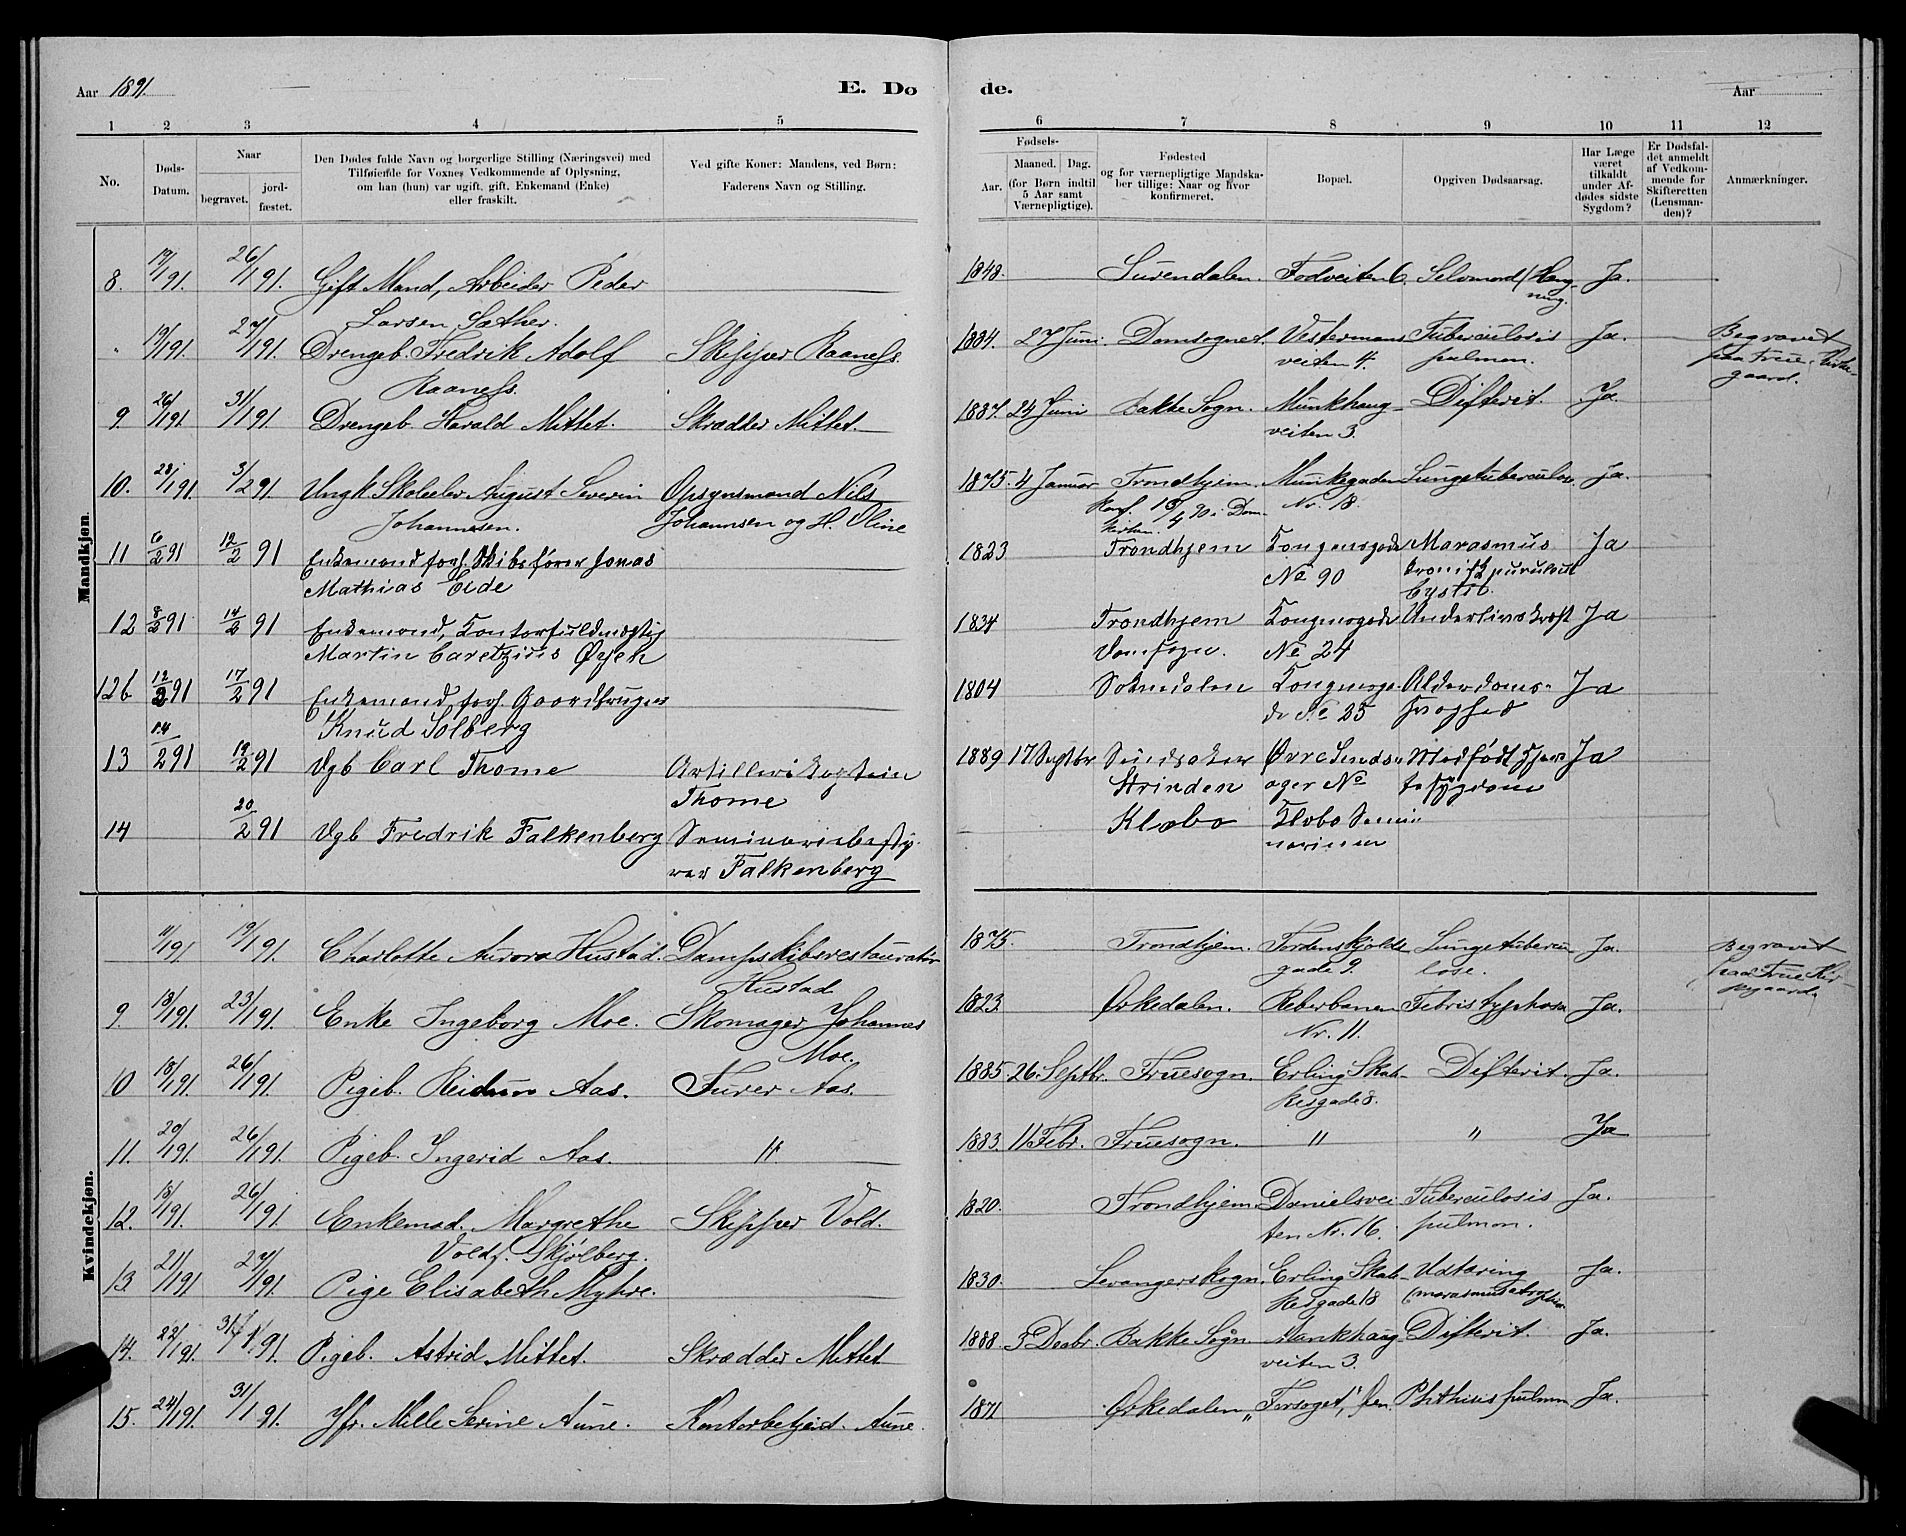 Aar 1891.
E. Dø
de.
Aar
1 2 3 4 5
6 7 8 9 10 11 12
No.
Døds-
Datum.
Naar
begravet.
jord-
fæstet.
Den Dødes fulde Navn og borgerlige Stilling (Næringsvei) med
Tilføielse for Voxnes Vedkommende af Oplysning,
om han (hun) var ugift, gift, Enkemand (Enke)
eller fraskilt.
Ved gifte Koner: Mandens, ved Børn:
Faderens Navn og Stilling.
Fødsels-
Aar.
Maaned. Dag.
(for Børn indtil
5 Aar samt
Værnepligtige).
Fødested
og for værnepligtige Mandska-
ber tillige: Naar og hvor
konfirmeret.
Bopæl.
Opgiven Dødsaarsag.
Har Læge
været
tilkaldt
under Af-
dødes sidste
Sygdom?
Er Dødsfal-
det anmeldt
af Vedkom-
mende for
Skifteretten
(Lensman-
den)?
Anmærkninger.
Mandkjøn.
8. 19/1 91. 26/1 91. Gift Mand, Arbeider Peder
Larsen Sæther.
1848. Surendalen. Fodveiten 6. Selvmord (Hæng-
ning. Ja.
" 19/1 91. 27/1 91. Drengeb. Fredrik Adolf
Raaness. Skipper Raaness.
1884. 27 Juni. Domsognet. Vestermans
veiten 4. Tuberculosis
pulmon. Ja. Begravet
paa Frue Kirke-
gaard.
9 26/1 91. 31/1 91 Drengeb. Harald Mittet. Skrædder Mittet.
1887. 24 Juni Bakke Sogn. Munkhaug-
veiten 3. Difterit. Ja.
10. 28/1 91. 3/2 91 Ungk. Skoleelev August Severin
Johannsen. Opsynsmand Nils
Johannsen og H. Oline
1875. 4 Januar Trondhjem.
Konf. 13/4 90 i Dom-
kirken. Munkegaden
Nr. 18. Lungetuberculos. Ja.
11 6/2 91 12/2 91 Enkemand forh. Skibsfører Jonas
Mathias Eide
1823 Trondhjem Kongensgade
No 90 Marasmus
kronisk purulent
Cystit. Ja
12 8/2 91 14/2 91 Enkemand, Kontorfuldmægtig
Martin Øyen
1834 Trondhjem
Domsogn. Kongensgade
No 24 Underlivskræft Ja
12b 12/2 91 17/2 91 Enkemand forh. Gaardbruger
Knud Solberg
1804 Soknedalen Kongensga-
de No 25 Alderdoms-
svaghed Ja
13 14/2 91 19/2 91 Dgb Carl Thome Artillerikaptein
Thome
1889 17 Septbr Sundsaker
Strinden Øvre Sunds-
ager No Medfødt Hjer-
tesygdom Ja
14 20/2 91 Dgb Fredrik Falkenberg Seminariebesty-
rer Falkenberg
Klæbo Klæbo Semi
narium
Kvindekjøn.
11/1 91 19/1 91. Charlotte Aurora Hustad. Dampskibsrestauratør
Hustad
1875. Trondhjem. Tordenskjolds
gade 9. Lungetubercu
lose. Ja. Begravet
paa Frue Kir-
kegaard.
9. 13/1 91. 23/1 91. Enke Ingeborg Moe. Skomager Johannes
Moe.
1823. Ørkedalen. Reberbanen
Nr. 11. Febris typhosa Ja.
10 18/1 91. 26/1 91. Pigeb. Reidun Aas. Furer Aas.
1885. 26. Septbr. Fruesogn. Erling Skak-
kesgade 8. Difterit. Ja.
11. 20/1 91. 26/1 91. Pigeb. Ingerid Aas. "
1883. 11 Febr. Fruesogn. " " Ja
12. 18/1 91. 26/1 91. Enkemad. Margrethe
Vold f. Skjølberg. Skipper Vold.
1820. Trondhjem. Danielsvei
ten Nr. 16. Tuberculosis
pulmon. Ja.
13. 21/1 91 27/1 91. Pige Elisabeth Myhre.
1830. Levangerskogn. Erling Skak-
kesgade 18 Udtæring
(marasmus Ja.
14. 22/1 91. 31/1 91. Pigeb. Astrid Mittet. Skrædder Mittet
1888. 3 Decbr. Bakke Sogn. Munkhaug-
veiten 3. Difterit. Ja.
15. 24/1 91. 31/1 91. Jfr. Mille Serine Aune. Kontorbetjent Aune.
1871 Ørkedalen "Forsøget," Phthisis pulmon. Ja.